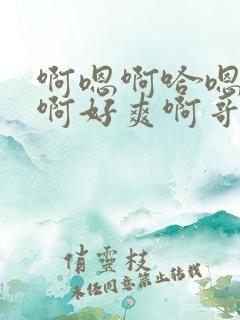 啊嗯啊哈嗯
啊好爽啊哥
俏靈枝
未经同意禁止转载